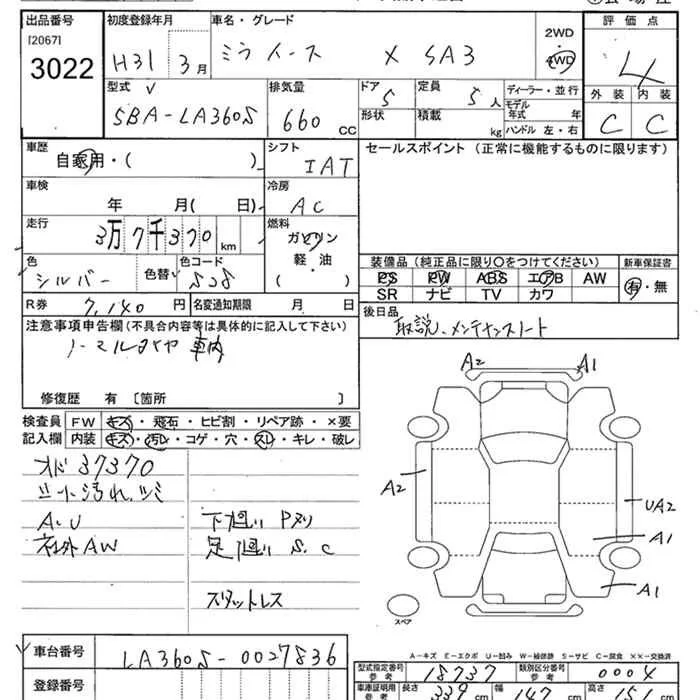 出品番号 初度登録年月 車名・グレード 2WD 評価点
[2067] H31 3月 ミライース X SA3 4WD 4
3022
型式 排気量 ドア 定員 ディーラー・並行 外装 内装
SBA-LA360S 660 CC 5 5人 モデル年式 年
形状 積載 kg ハンドル 左・右 C C
車歴 シフト セールスポイント (正常に機能するものに限ります)
自家用・( ) IAT
車検 冷房
年 月( 日) AC
走行 燃料
3万7千370km ガソリン
軽・油
( )
色 色替 色コード 装備品 (純正品に限り○をつけてください) 新車保証書
シルバー S28 PS PW ABS エアB AW 有・無
SR ナビ TV カワ
R券 7,140円 名変通知期限 月 日 後日品
取説、メンテナンスノート
注意事項申告欄 (不具合内容等は具体的に記入して下さい)
ノーマルタイヤ車内
修復歴 有 〔箇所 〕
検査員 FW キズ・飛石・ヒビ割・リペア跡・×要
記入欄 内装 キズ・汚レ・コゲ・穴・スレ・キレ・破レ
A2 A1
オド37370
シート汚れ、シミ
A2 UA2
A.U 下廻りPヌリ
社外AW 足廻りS.C A1
A1
スタットレス
スペア
A-キズ E-エクボ U-凹み W-補修跡 S-サビ C-腐食 ××-交換済
車台番号 LA360S-0027836
型式指定番号 参考 18737 類別区分番号 参考 0004
登録番号
車庫証明用 参考 長さ 339 cm 幅 147 cm 高さ cm